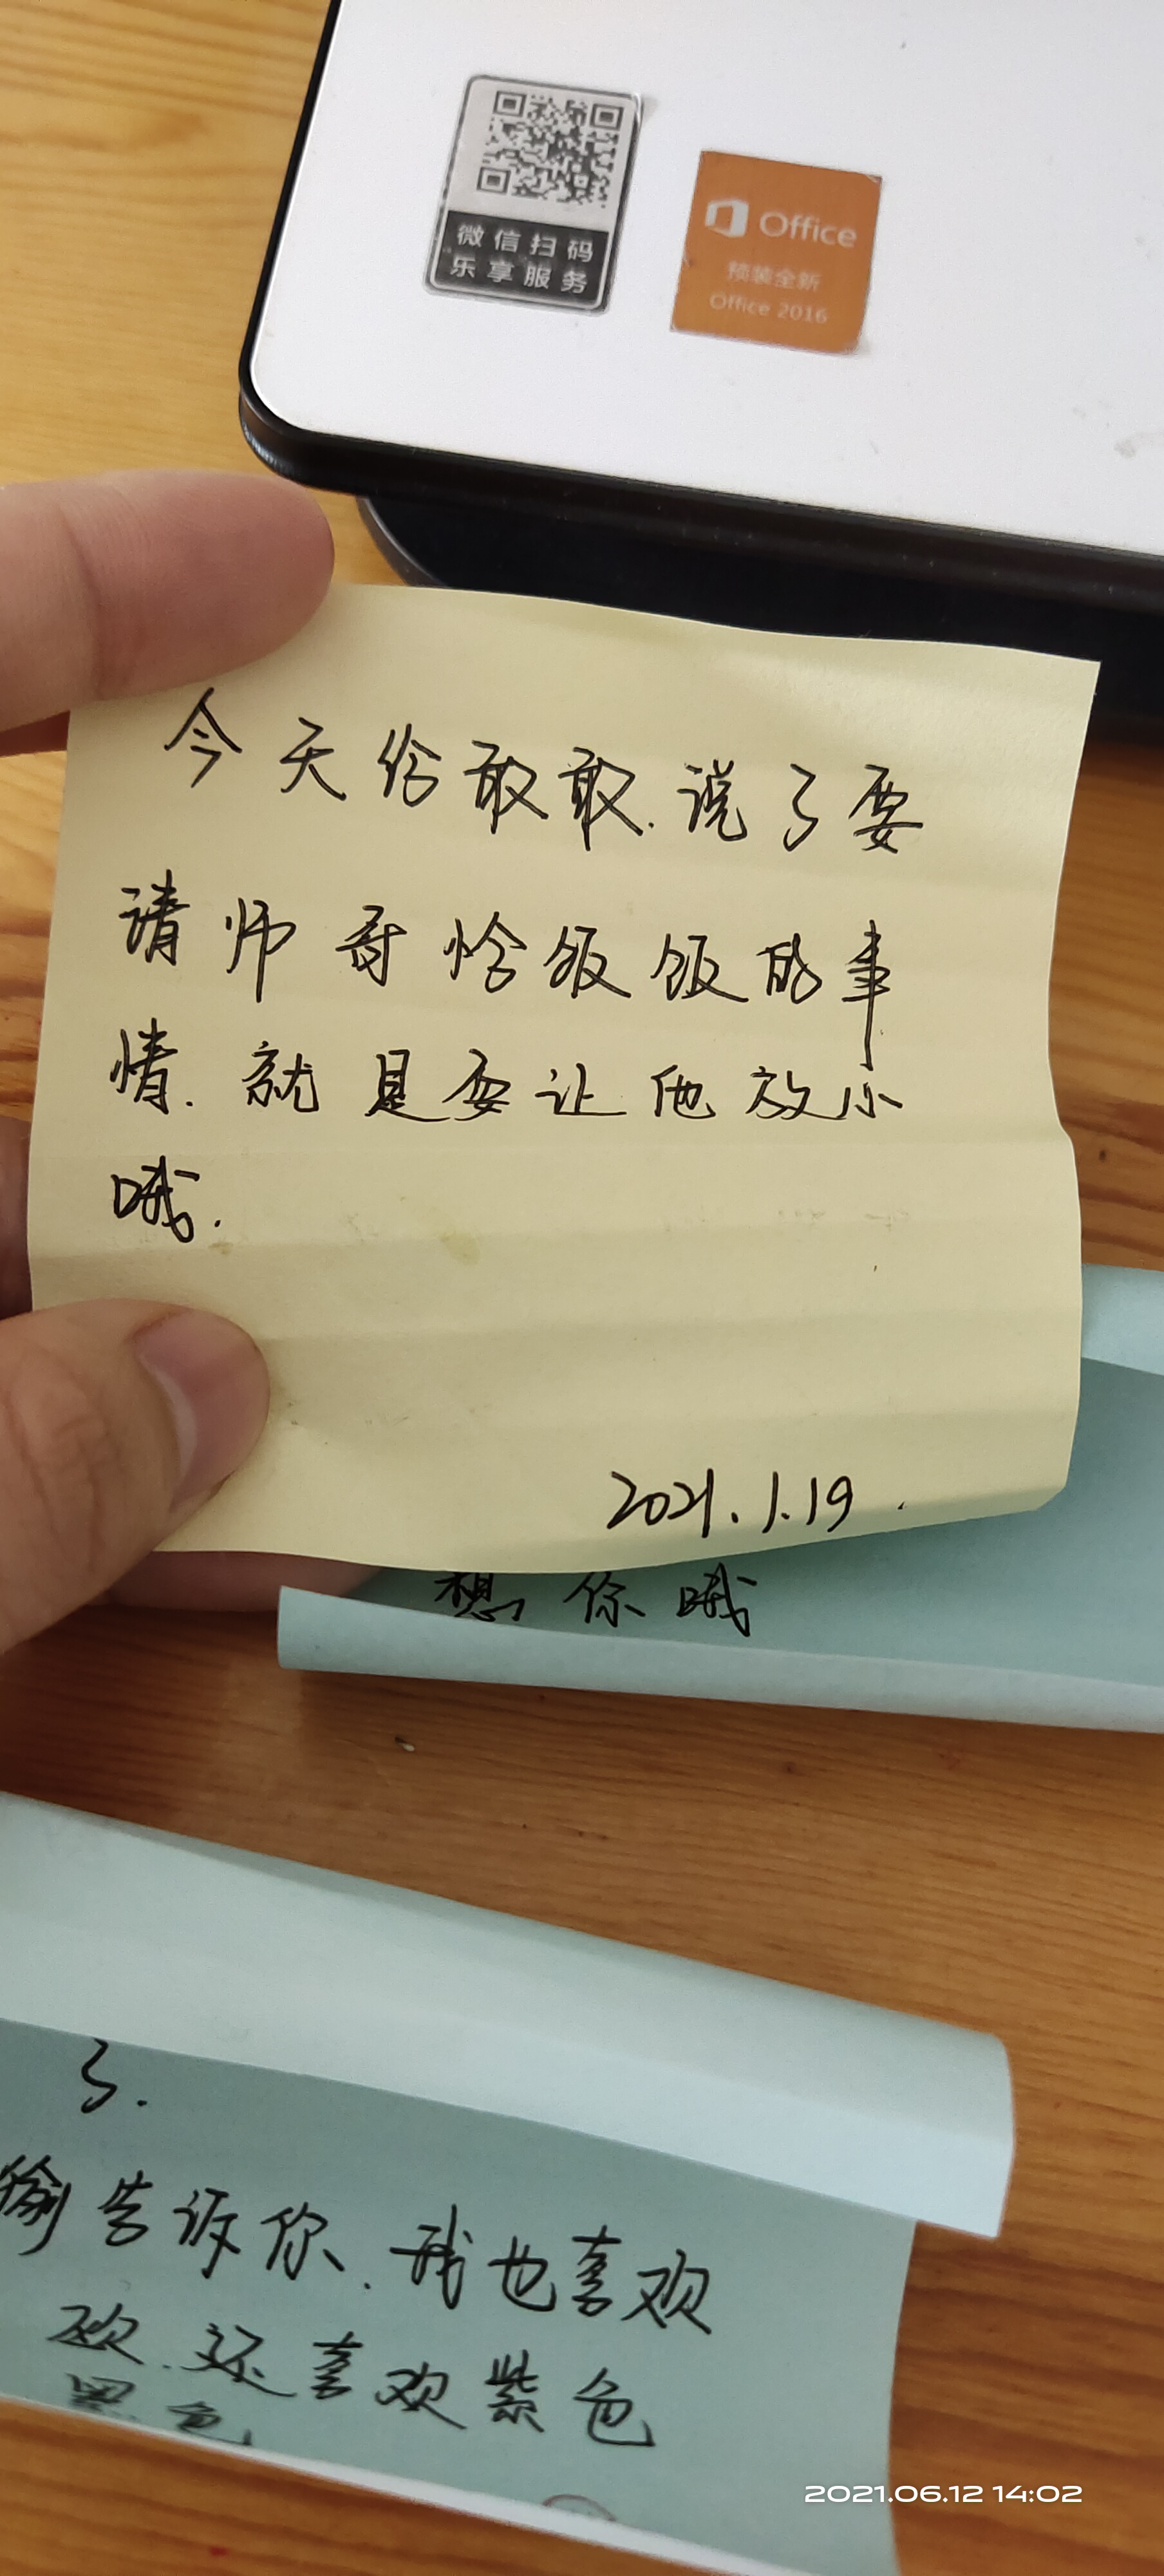 微信扫码
乐享服务
Office
预装全新
Office 2016
今天给敢敢.说了要
请师哥恰饭饭的事
情.就是要让他放小
哦.
2021.1.19.
想你哦
了.
偷告诉你.我也喜欢
欧.还喜欢紫色
黑色
2021.06.12 14:02